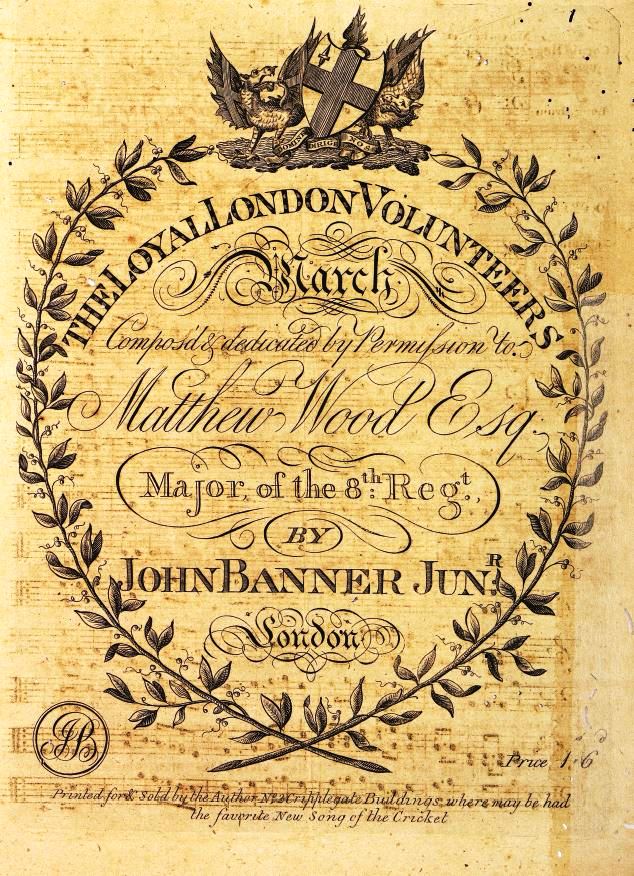 1
DOMINE DIRIGE NOS
THE LOYAL LONDON VOLUNTEERS
March
Compos'd & dedicated by Permiſsion to
Matthew Wood Esq.
Major, of the 8th: Regt.,
BY
JOHN BANNER JUNR.
London
JB
Price 1.6
Printed for & Sold by the Author No. 2 Cripplegate Buildings, where may be had
the favorite New Song of the Cricket